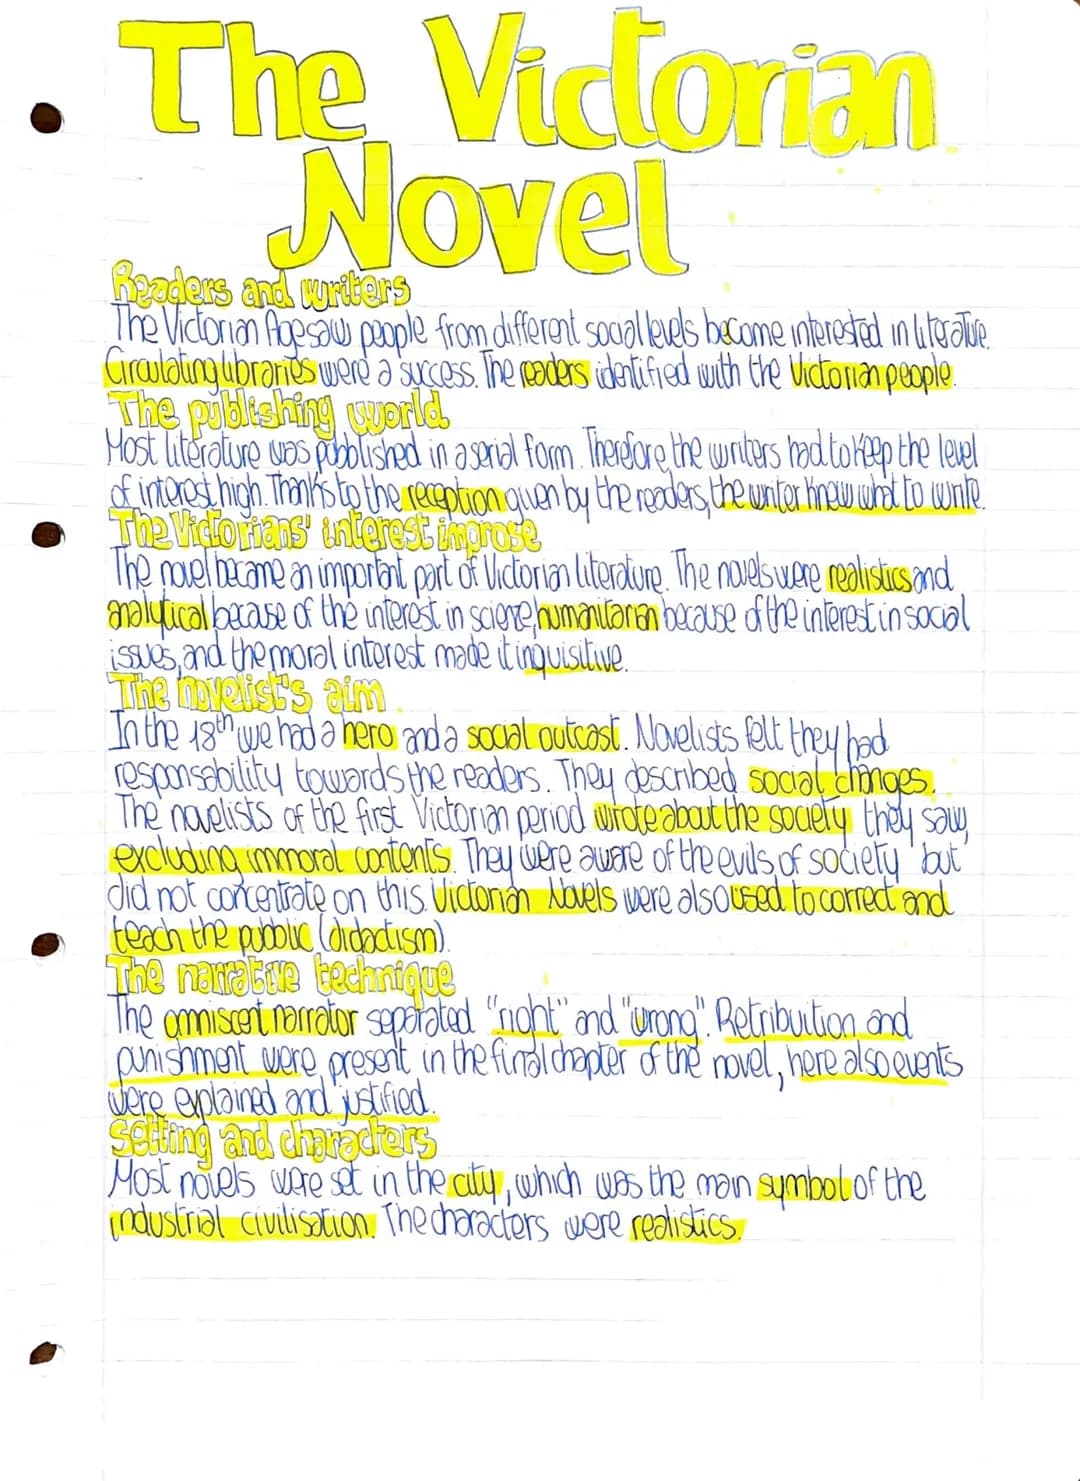 The Victorian
Novel
Readers and writers
The Victorian Age saw people from different social levels become interested in literature.
Circulating libraries were a success. The readers identified with the Victorian people.
The publishing world
Most literature was pubblished in a serial form. Therefore, the writers had to keep the level
of interest high. Thanks to the reception given by the readers, the writer knew what to write.
The Victorians' interest in prose
The novel became an important part of Victorian literature. The novels were realistics and
analytical becase of the interest in science, humanitarian because of the interest in social
issues, and the moral interest made it inquisitive.
The novelist's aim
In the 18th we had a hero and a social outcast. Novelists felt they had
responsability towards the readers. They described social changes.
The novelists of the first Victorian period wrote about the society they saw,
excluding immoral contents. They were aware of the evils of society but
did not concentrate on this. Victorian Novels were also used to correct and
teach the pubblic (didactism).
The narrative technique
The omniscent narrator separated "right" and "wrong". Retribuition and
punishment were present in the final chapter of the novel, here also events
were explained and justified.
Setting and characters
Most novels were set in the city, which was the main symbol of the
industrial civilisation. The characters were realistics.